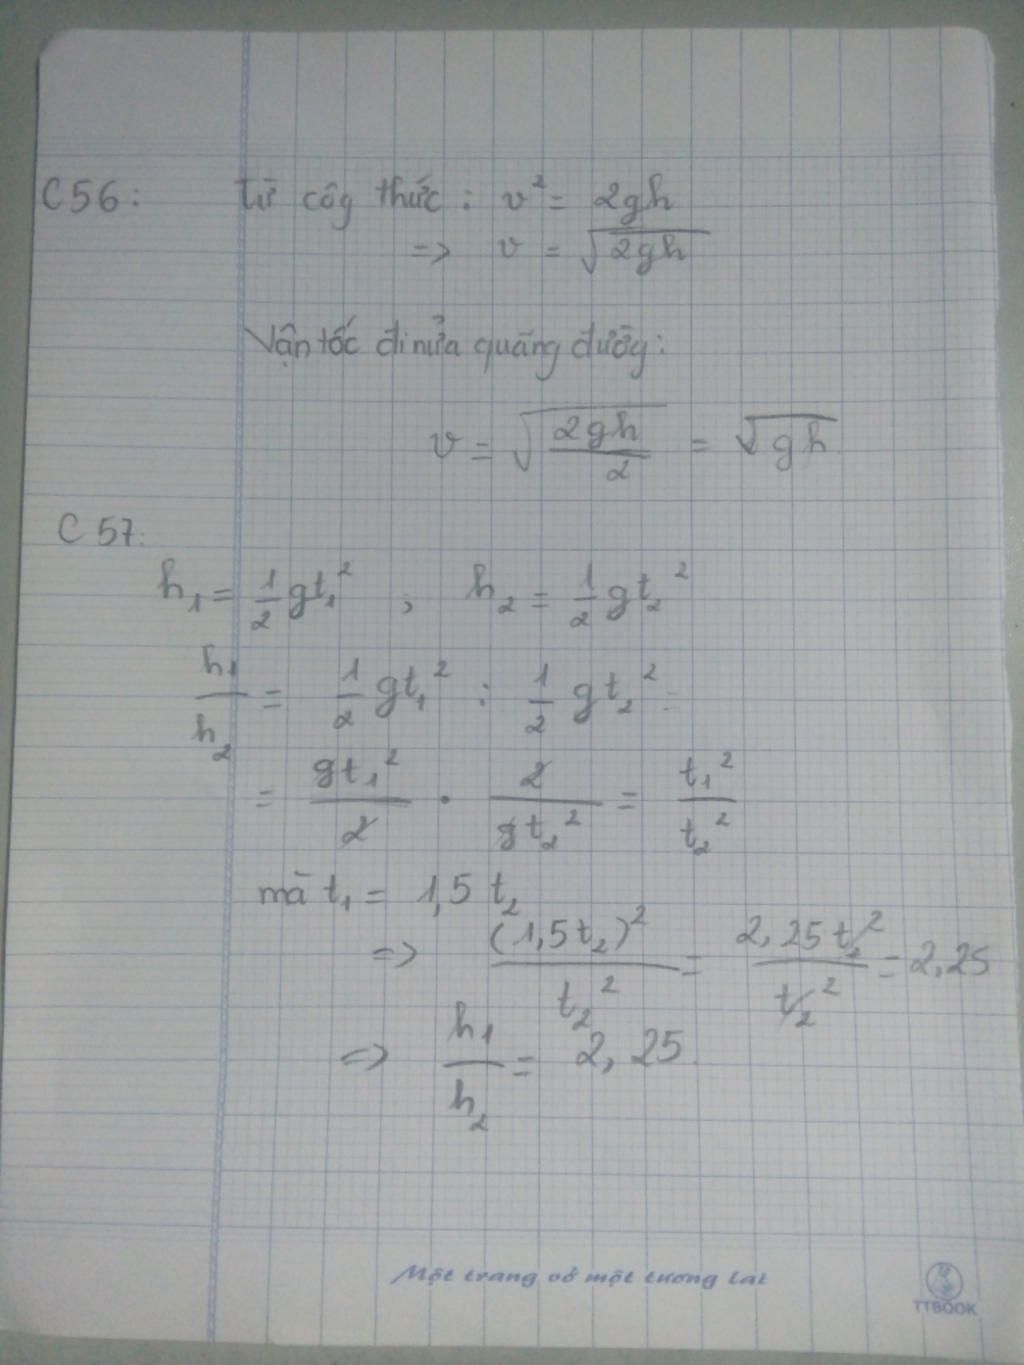 C56: Từ côg thức : v² = 2gh
=> v = √2gh
Vận tốc đi nửa quãng đườg:
v = √(2gh/2) = √gh
C 57:
h₁ = 1/2 gt₁² ; h₂ = 1/2 gt₂²
h₁/h₂ = 1/2 gt₁² : 1/2 gt₂² =
= gt₁²/2 . 2/gt₂² = t₁²/t₂²
mà t₁ = 1,5 t₂
=> (1,5t₂)²/t₂² = 2,25t₂²/t₂² = 2,25
=> h₁/h₂ = 2,25
Một trang vở một tương lai
TTBOOK